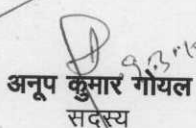 अनूप कुमार गोयल
सदस्य